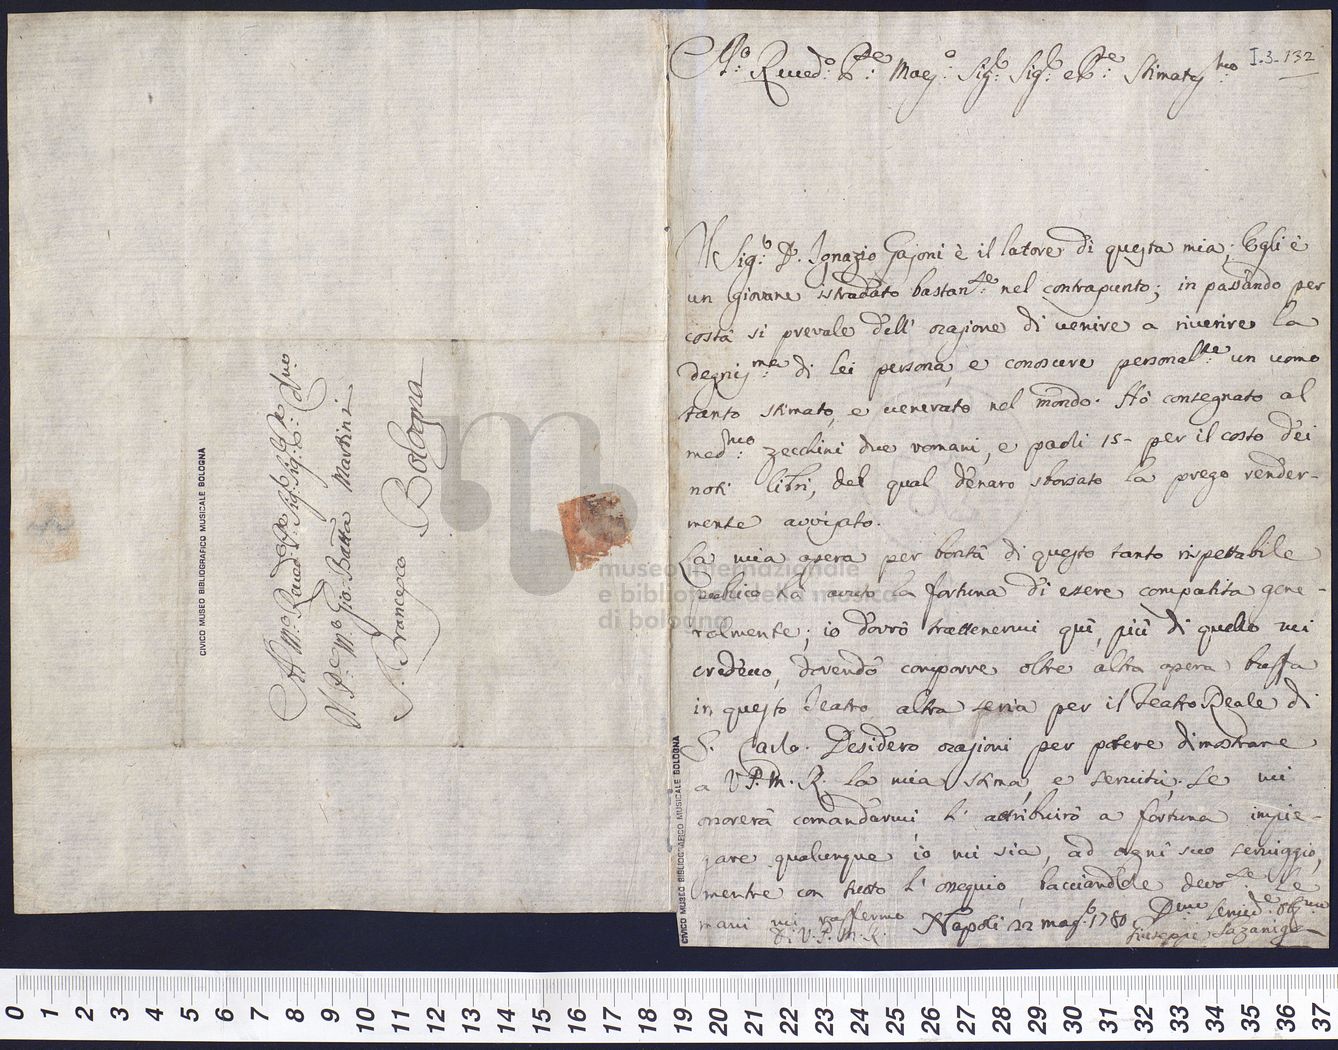 All' M.º Reved.º P̃re Sig.r Sig.r P.ñe Col.mo
Il P.re M.ro Gio: Batta Martini
S. Francesco Bologna
CIVICO MUSEO BIBLIOGRAFICO MUSICALE BOLOGNA
museo internazionale
e biblioteca della musica
di bologna
I.3.132
M.º Revedo: P.re Maes.o Sig.r Sig.r e P.ne Stimatis.mo
Il Sig.r D. Ignazio Gajoni è il latore di questa mia; Egli è
un giovane istradato bastan.te nel contrapunto; in passando per
costà si prevale dell' occasione di venire a riverire la
degnis.ma di lei persona, e conoscere personal.te un uomo
tanto stimato, e venerato nel mondo. Hò consegnato al
med.mo zecchini due romani, e paoli 15- per il costo dei
noti libri, del qual denaro sborsato la prego render-
mente avvisato.
La mia opera per bontà di questo tanto rispettabile
publico hà avuto la fortuna di essere compatita gene-
ralmente; io dovrò trattenermi quì, più di quello mi
credevo, dovendo comporre oltre altra opera buffa
in questo Teatro altra seria per il Teatro Reale di
S. Carlo. Desidero occasioni per potere dimostrare
a V.P.M.R. la mia stima, e servitù. Se mi
onorerà comandarmi l' attribuirò a fortuna impie-
gare qualunque io mi sia, ad ogni suo serviggio,
mentre con tutto l' ossequio bacciandole devo.te le
mani mi raffermo Napoli 22 mag.o 1780
Di V.P.M.R.
D.mo Servid.e Obl.mo
Giuseppe Gazaniga
CIVICO MUSEO BIBLIOGRAFICO MUSICALE BOLOGNA
0 1 2 3 4 5 6 7 8 9 10 11 12 13 14 15 16 17 18 19 20 21 22 23 24 25 26 27 28 29 30 31 32 33 34 35 36 37